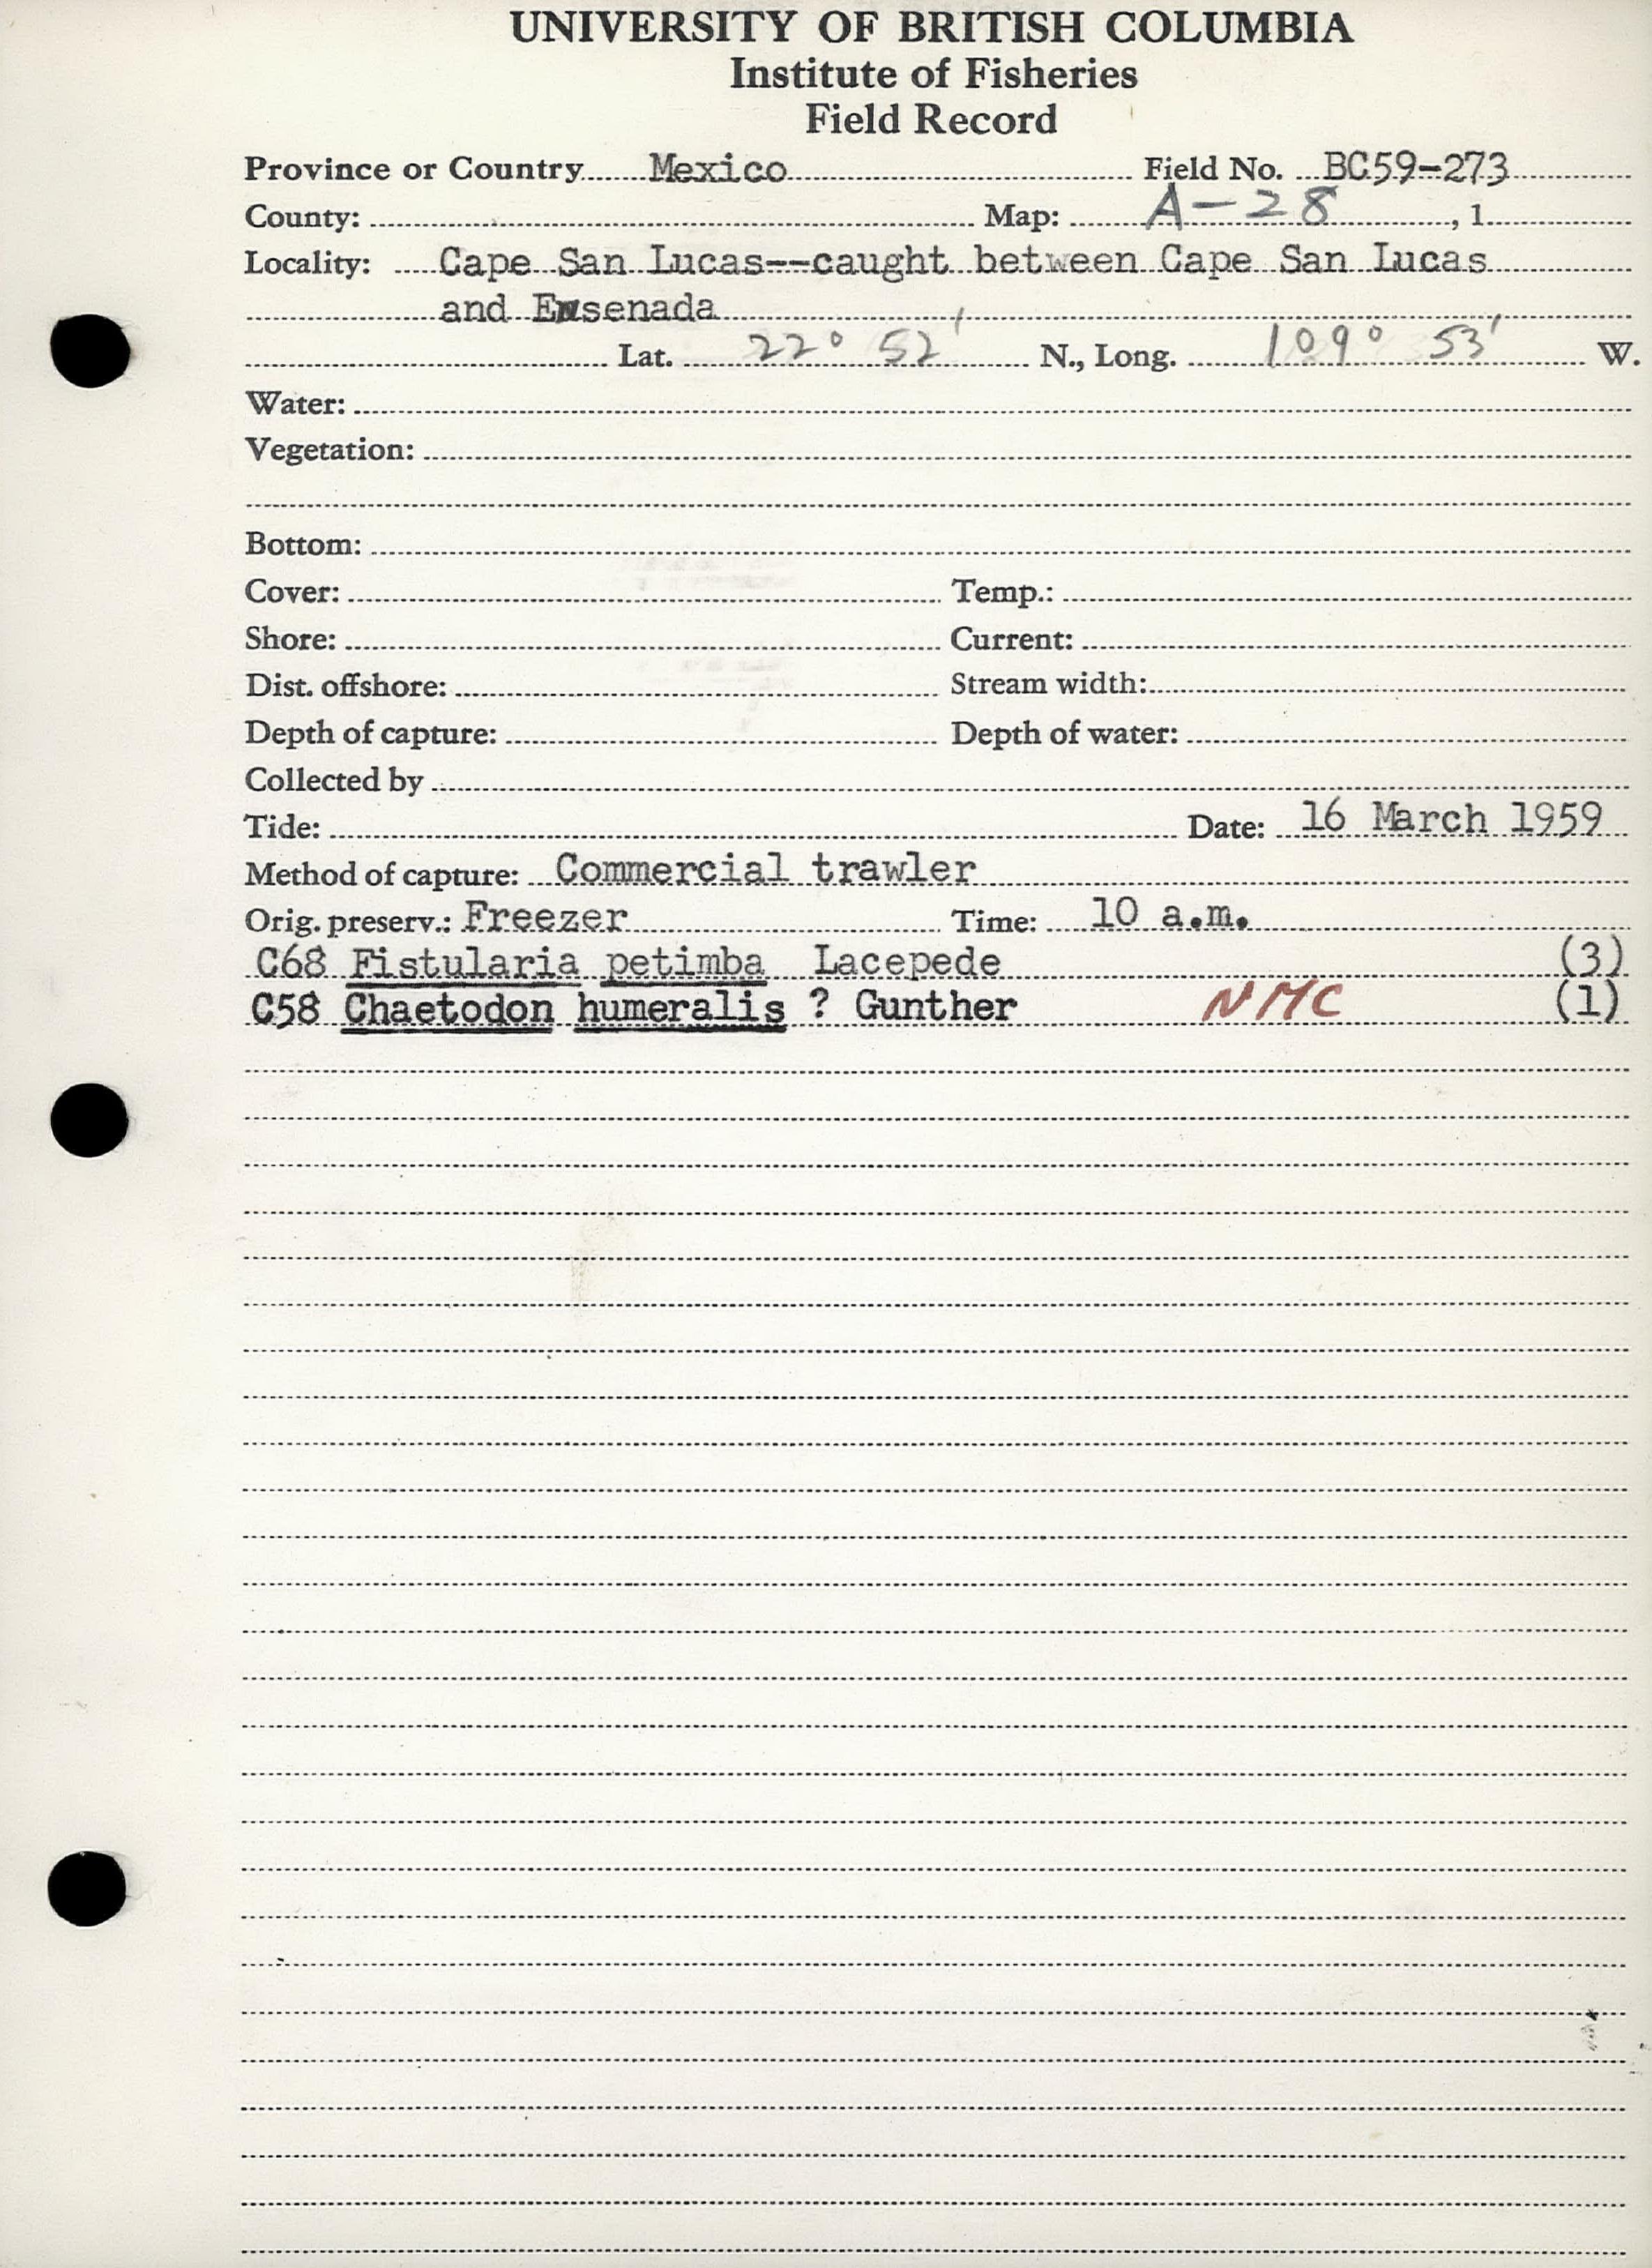 UNIVERSITY OF BRITISH COLUMBIA
Institute of Fisheries
Field Record
Province or Country Mexico Field No. BC59-273
County: Map: A-28, 1
Locality: Cape San Lucas--caught between Cape San Lucas
and Ensenada
Lat. 22° 52' N., Long. 109° 53' W.
Water:
Vegetation:
Bottom:
Cover: Temp.:
Shore: Current:
Dist. offshore: Stream width:
Depth of capture: Depth of water:
Collected by
Tide: Date: 16 March 1959
Method of capture: Commercial trawler
Orig. preserv.: Freezer Time: 10 a.m.
C68 Fistularia petimba Lacepede (3)
C58 Chaetodon humeralis ? Gunther NMC (1)